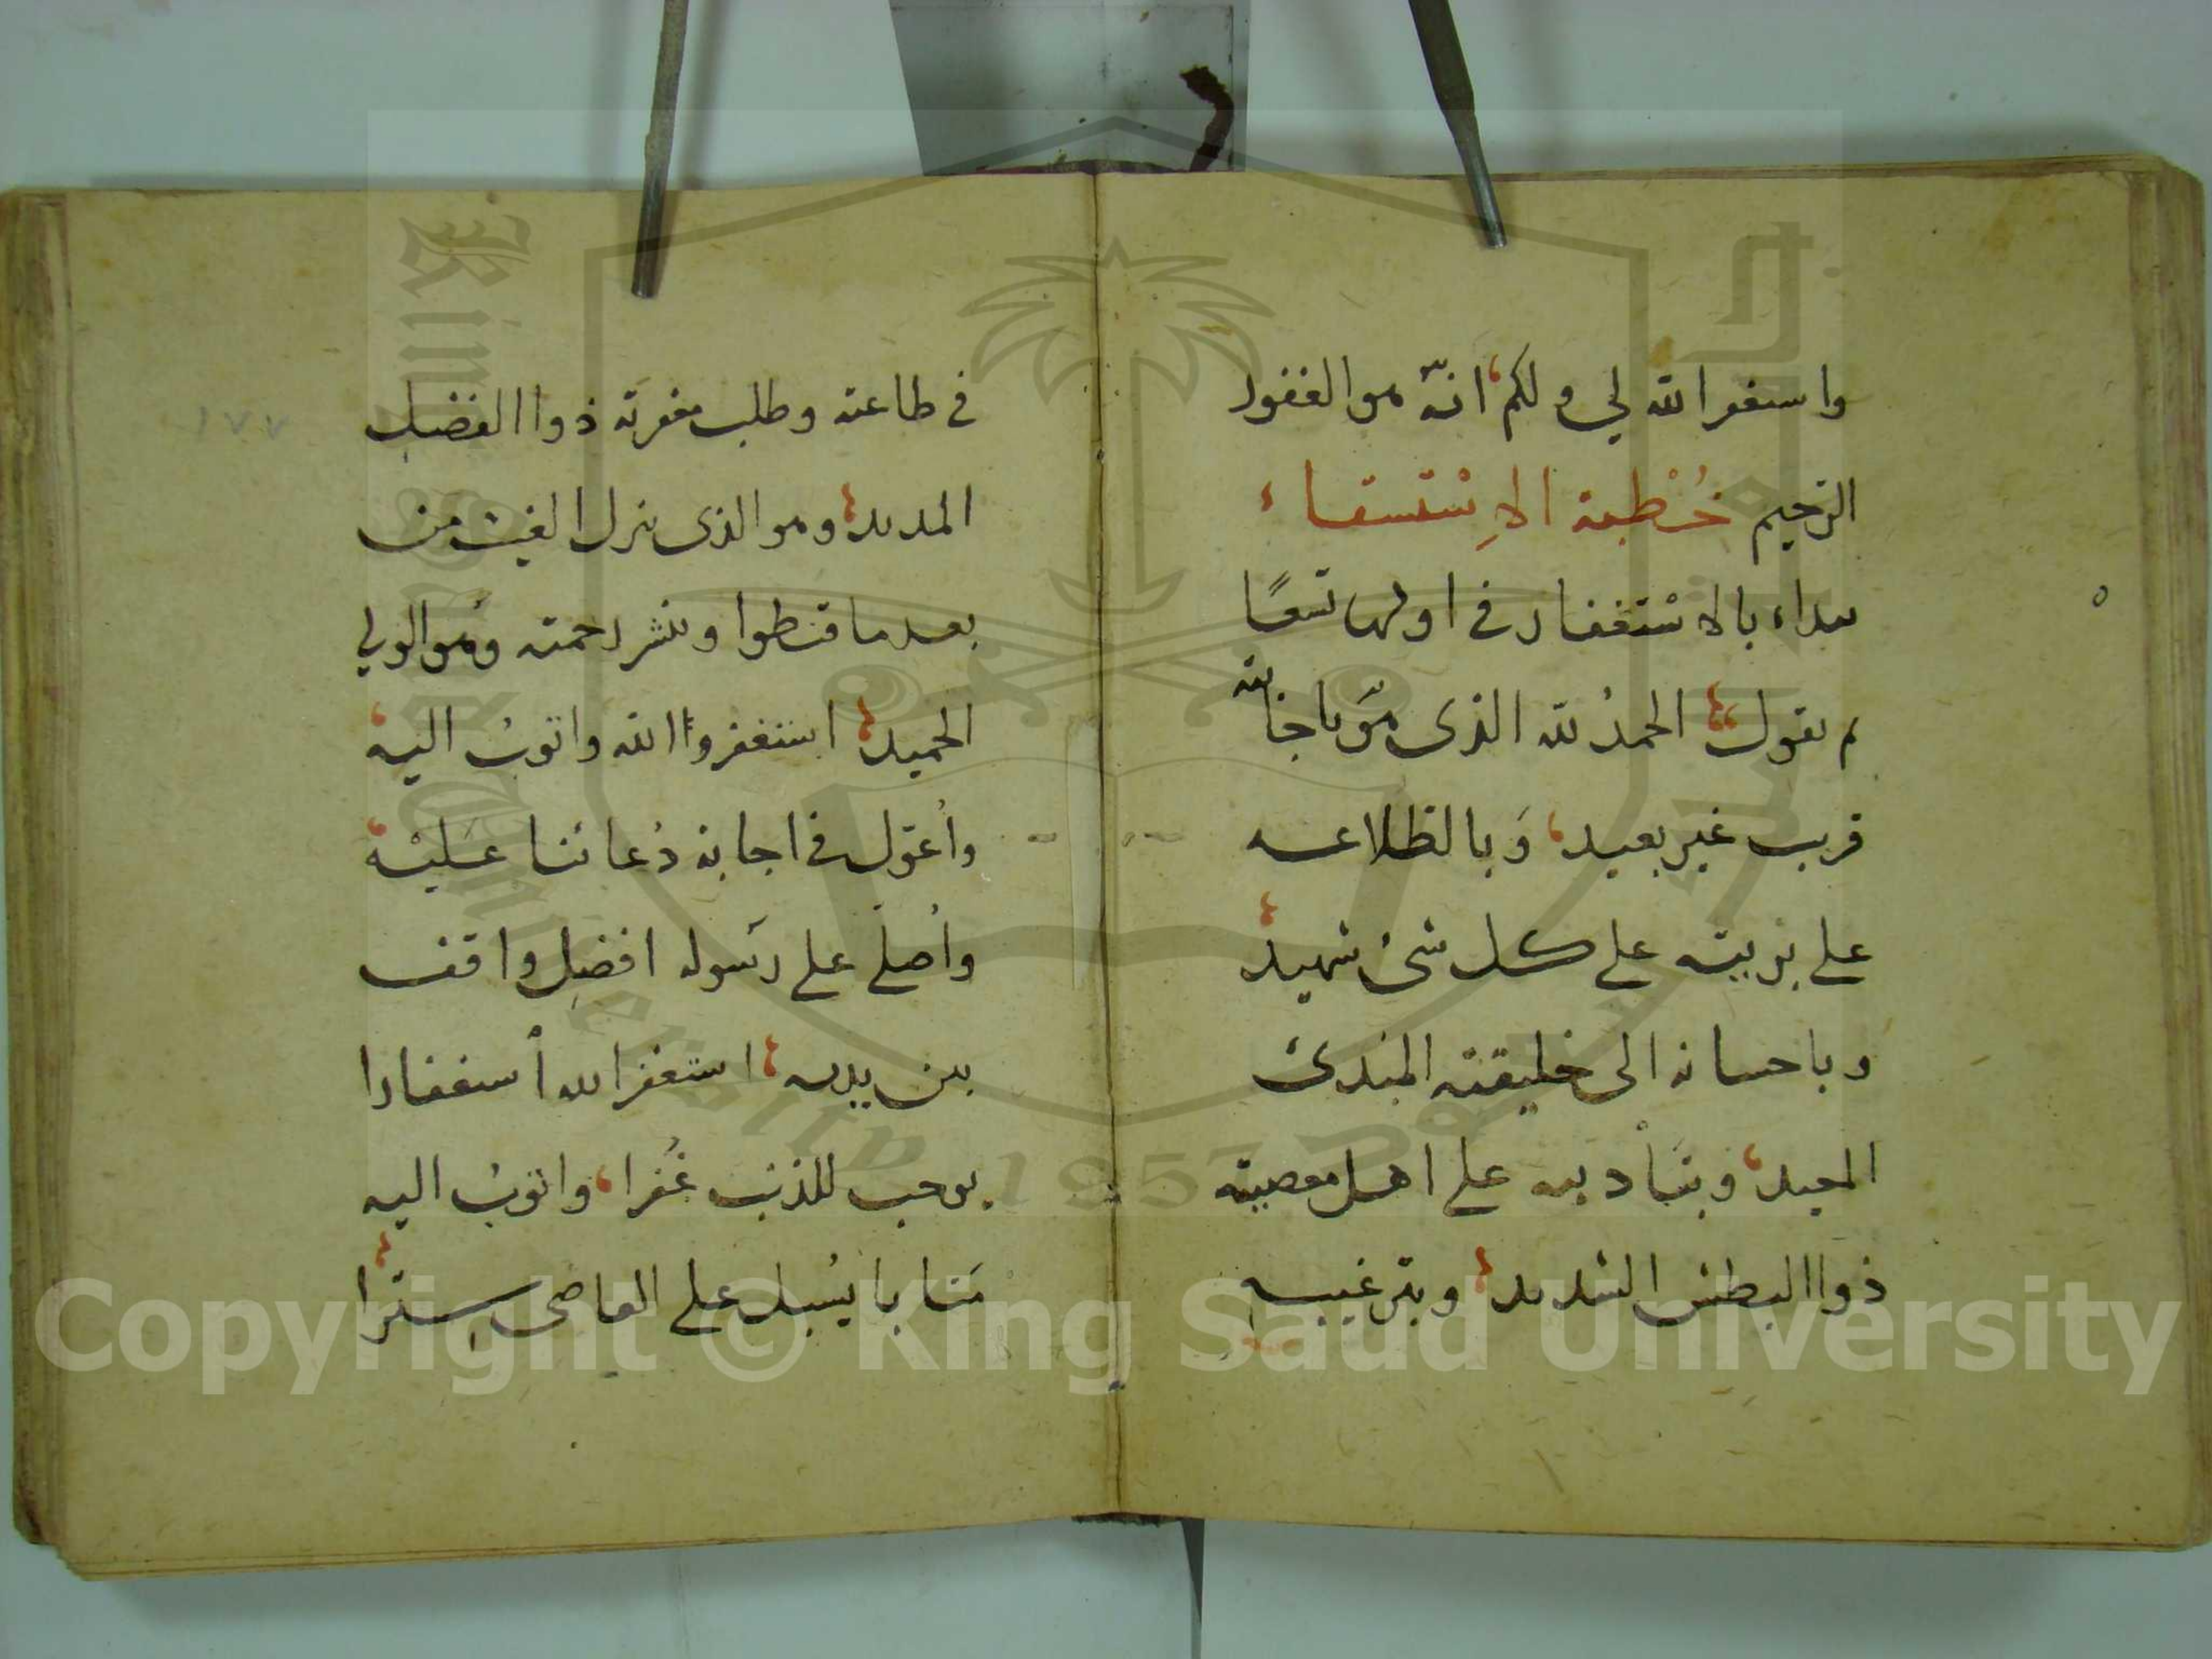 واسغفر الله لي ولكم انه هو الغفور
الرحيم خُطبة الاِستسقاء
يبداء بالاستغفار في اولها تسعًا
ثم يقول الحمدُ لله الذى هو باجابته
قريب غير بعيد وبالظلاعه
على بريته على كل شئ شهيد
وباحسانه الى خليقته المبدئ
المعيد وبتأديبه على اهل معصيته
ذوا البطش الشديد وبترغيبه
١٧٧
في طاعته وطلب مغفرته ذوا الفضل
المديد وهو الذى ينزل الغيث من
بعد ما قنطوا وينشر رحمته وهو الولي
الحميد استغفروا الله واتوبُ اليه
واُعَوّل في اجابة دُعائنا عليْه
واُصلّي على رسوله افضل واقف
بين يديه استغفر الله أسغفارا
يوجب للذنب غَفرا واتوبُ اليه
متابا يُسبل على العاصى سِترًا
Copyright © King Saud University
King Saud University
1957